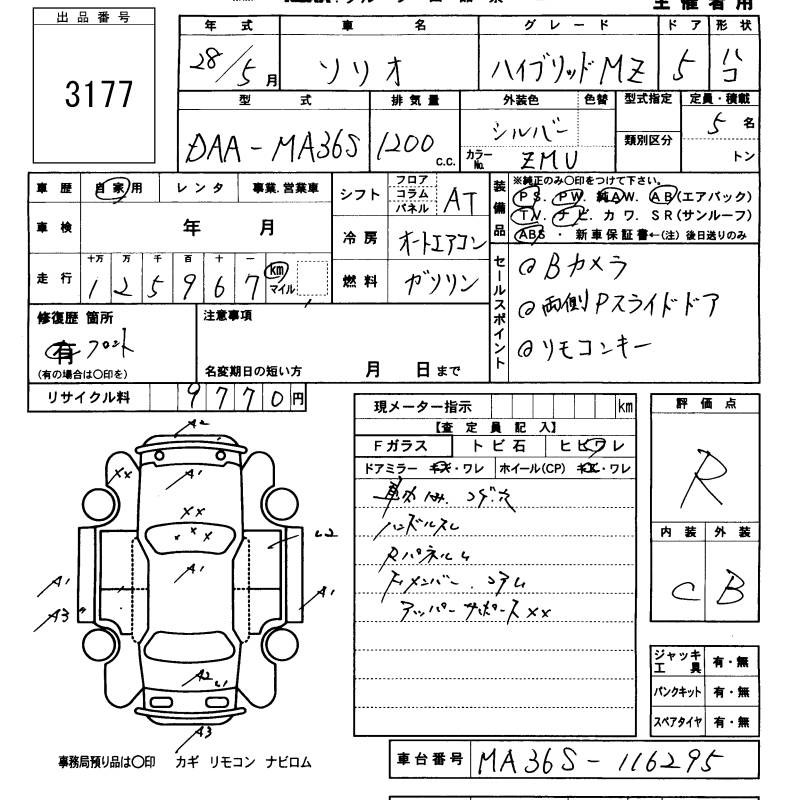 出品番号
3177
年式 車名 グレード ドア 形状
28/5月 ソリオ ハイブリッドMZ 5 ハコ
型式 排気量 外装色 色替 型式指定 定員・積載
DAA-MA36S 1200 c.c. シルバー 類別区分 5名
カラーNo. ZMU トン
車歴 自家用 レンタ 事業.営業車
車検 年 月
走行 十万 万 千 百 十 一 km マイル
1 2 5 9 6 7
シフト フロア コラム パネル AT
冷房 オートエアコン
燃料 ガソリン
装備品 ※純正のみ○印をつけて下さい。
PS. PW. 純AW. AB(エアバック)
TV. ナビ. カワ. SR(サンルーフ)
ABS ・ 新車保証書←(注) 後日送りのみ
セールスポイント
◎Bカメラ
◎両側Pスライドドア
◎リモコンキー
修復歴 箇所
有 フロント
(有の場合は○印を)
注意事項
名変期日の短い方 月 日まで
リサイクル料 9770円
現メーター指示 km
【査定員記入】
Fガラス トビ石 ヒビワレ
ドアミラー キズ・ワレ ホイール(CP) キズ・ワレ
ハンドルスレ
Rパネル
アッパーサポート XX
評価点
R
内装 外装
C B
ジャッキ工具 有・無
パンクキット 有・無
スペアタイヤ 有・無
A2
XX A1
XX
A1
A1 A1
A3
A2
A3
事務局預り品は○印 カギ リモコン ナビロム
車台番号 MA36S-116295